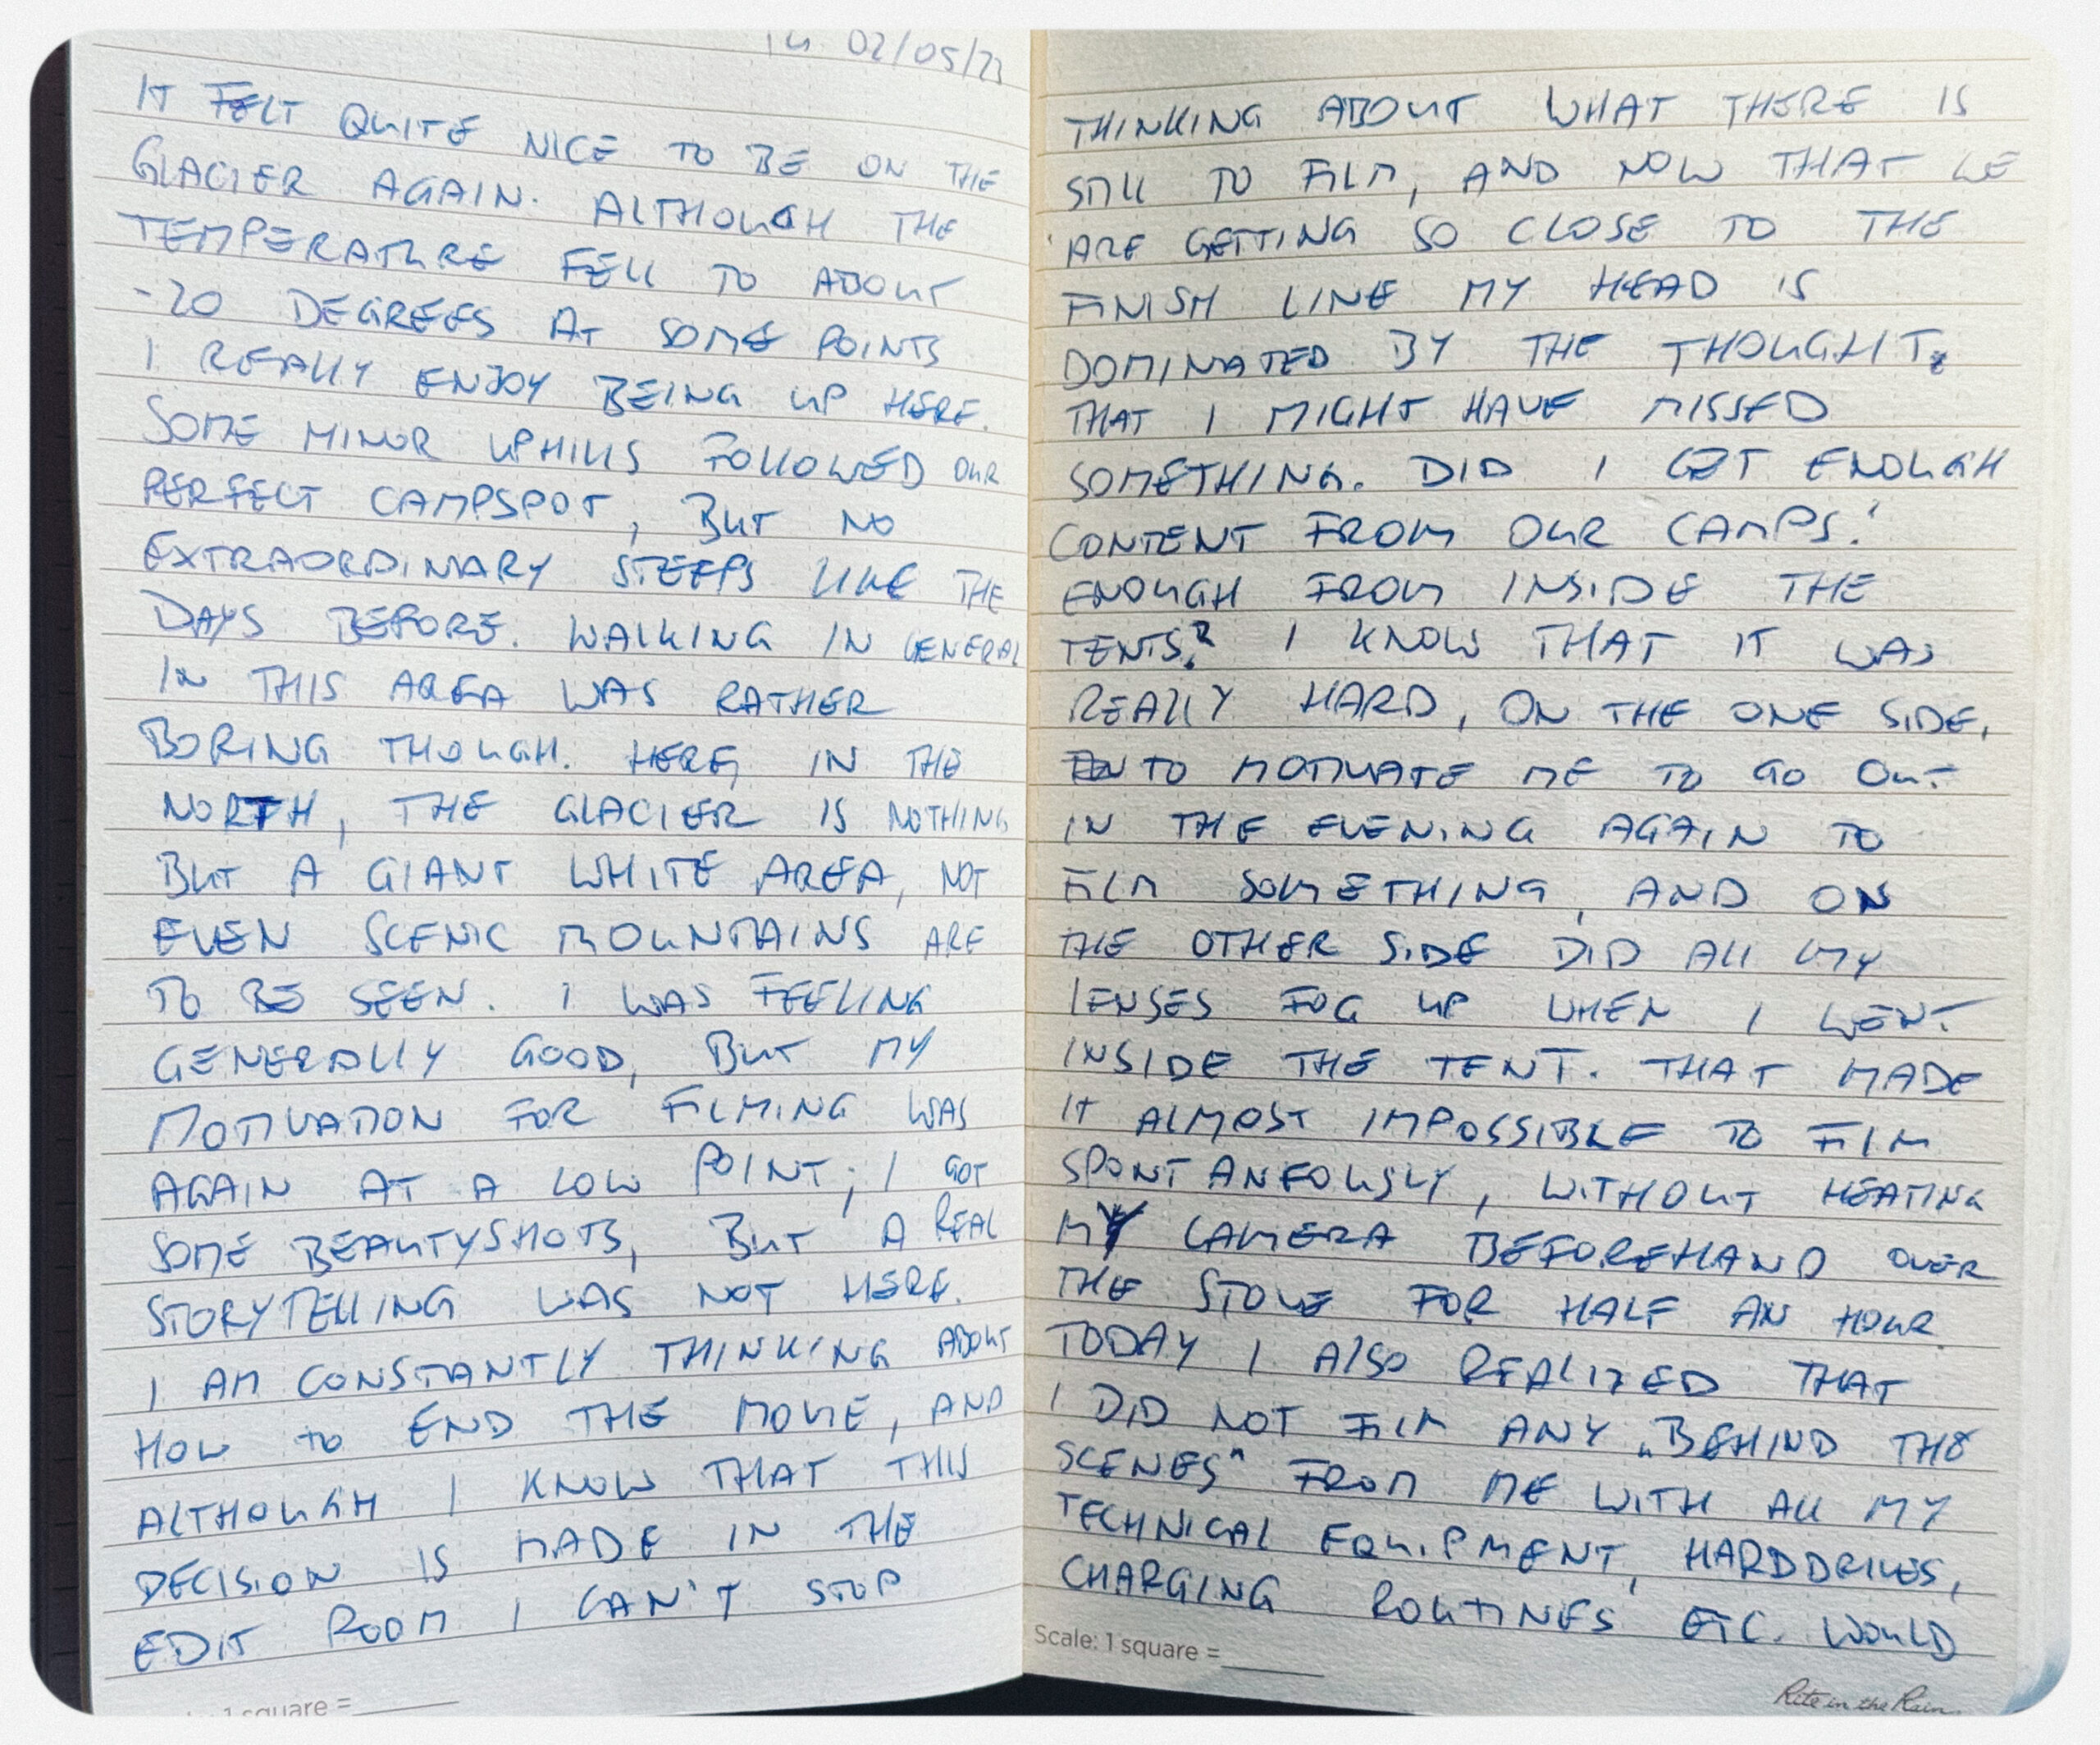 14 02/05/23
IT FELT QUITE NICE TO BE ON THE
GLACIER AGAIN. ALTHOUGH THE
TEMPERATURE FELL TO ABOUT
-20 DEGREES AT SOME POINTS
I REALLY ENJOY BEING UP HERE.
SOME MINOR UPHILLS FOLLOWED OUR
PERFECT CAMPSPOT, BUT NO
EXTRAORDINARY STEEPS LIKE THE
DAYS BEFORE. WALKING IN GENERAL
IN THIS AREA WAS RATHER
BORING THOUGH. HERE, IN THE
NORTH, THE GLACIER IS NOTHING
BUT A GIANT WHITE AREA, NOT
EVEN SCENIC MOUNTAINS ARE
TO BE SEEN. I WAS FEELING
GENERALLY GOOD, BUT MY
MOTIVATION FOR FILMING WAS
AGAIN AT A LOW POINT; I GOT
SOME BEAUTYSHOTS, BUT A REAL
STORYTELLING WAS NOT HERE.
I AM CONSTANTLY THINKING ABOUT
HOW TO END THE MOVIE, AND
ALTHOUGH I KNOW THAT THIS
DECISION IS MADE IN THE
EDIT ROOM I CAN'T STOP
1 square =
THINKING ABOUT WHAT THERE IS
STILL TO FILM, AND NOW THAT WE
ARE GETTING SO CLOSE TO THE
FINISH LINE MY HEAD IS
DOMINATED BY THE THOUGHT,
THAT I MIGHT HAVE MISSED
SOMETHING. DID I GET ENOUGH
CONTENT FROM OUR CAMPS?
ENOUGH FROM INSIDE THE
TENTS? I KNOW THAT IT WAS
REALLY HARD, ON THE ONE SIDE,
TO MOTIVATE ME TO GO OUT
IN THE EVENING AGAIN TO
FILM SOMETHING, AND ON
THE OTHER SIDE DID ALL MY
LENSES FOG UP WHEN I WENT
INSIDE THE TENT. THAT MADE
IT ALMOST IMPOSSIBLE TO FILM
SPONTANEOUSLY, WITHOUT HEATING
MY CAMERA BEFOREHAND OVER
THE STOVE FOR HALF AN HOUR.
TODAY I ALSO REALIZED THAT
I DID NOT FILM ANY „BEHIND THE
SCENES" FROM ME WITH ALL MY
TECHNICAL EQUIPMENT, HARDDRIVES,
CHARGING ROUTINES ETC. WOULD
Scale: 1 square =
Rite in the Rain